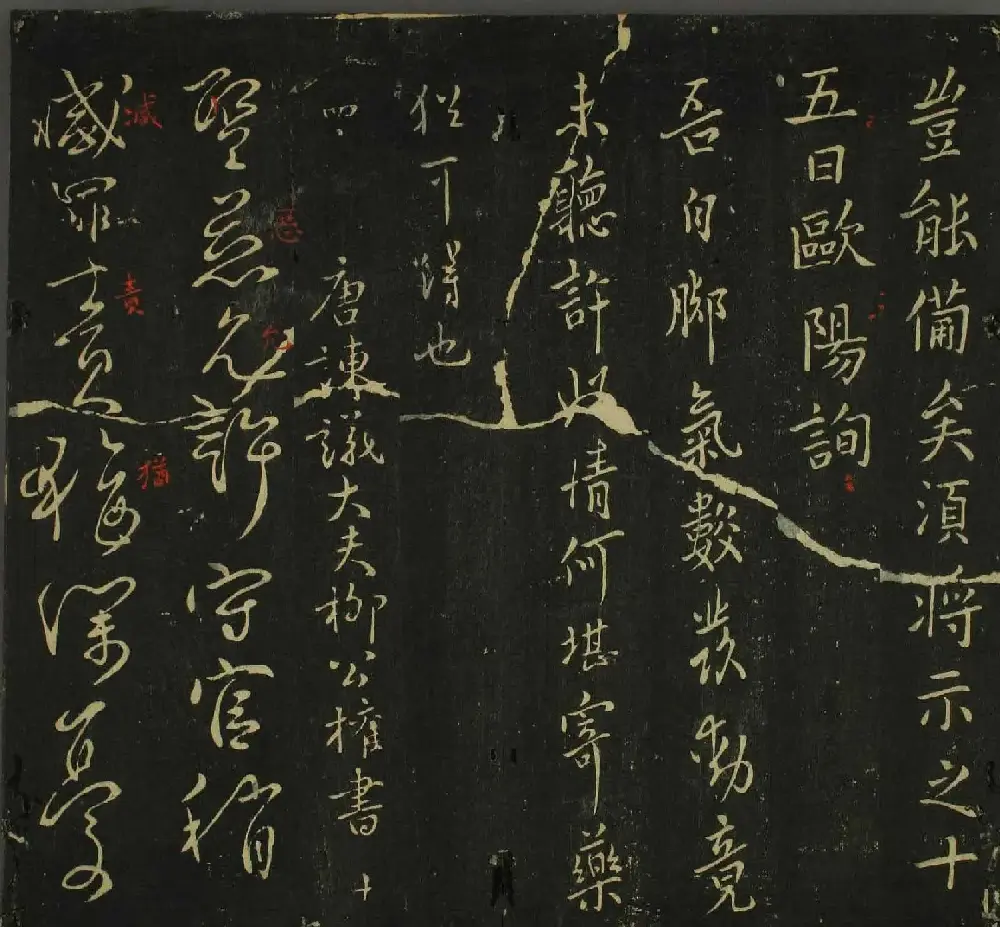 豈能備矣須將示之十
五日歐陽詢
吾自腳氣數發動竟
未聽許此情何堪寄藥
猶可得也
四
唐諫議大夫柳公權書 十
聖慈允許守官稍
慈
允
減罪責猶深
減
責
猶